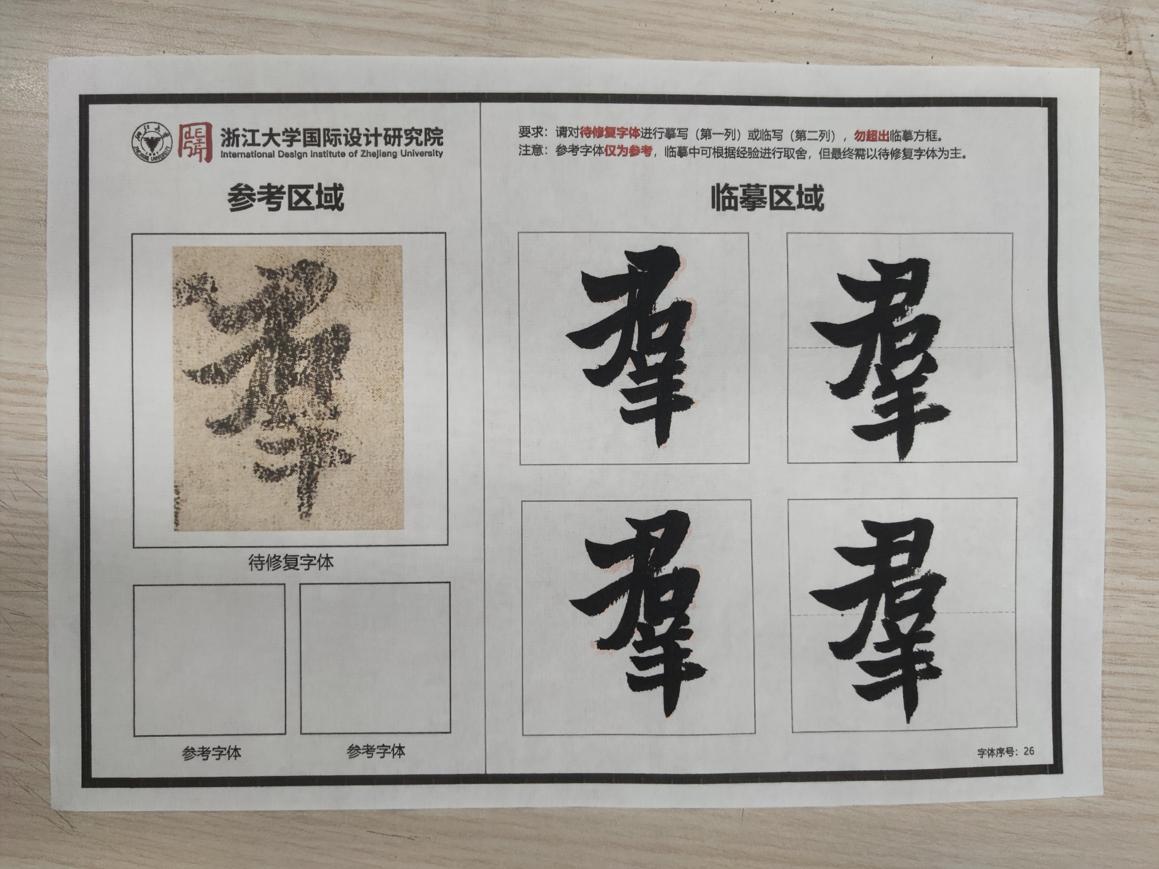 浙江大学国际设计研究院
International Design Institute of Zhejiang University
参考区域
羣
待修复字体
参考字体
参考字体
要求：请对待修复字体进行摹写（第一列）或临写（第二列），勿超出临摹方框。
注意：参考字体仅为参考，临摹中可根据经验进行取舍，但最终需以待修复字体为主。
临摹区域
羣 羣
羣 羣
字体序号：26